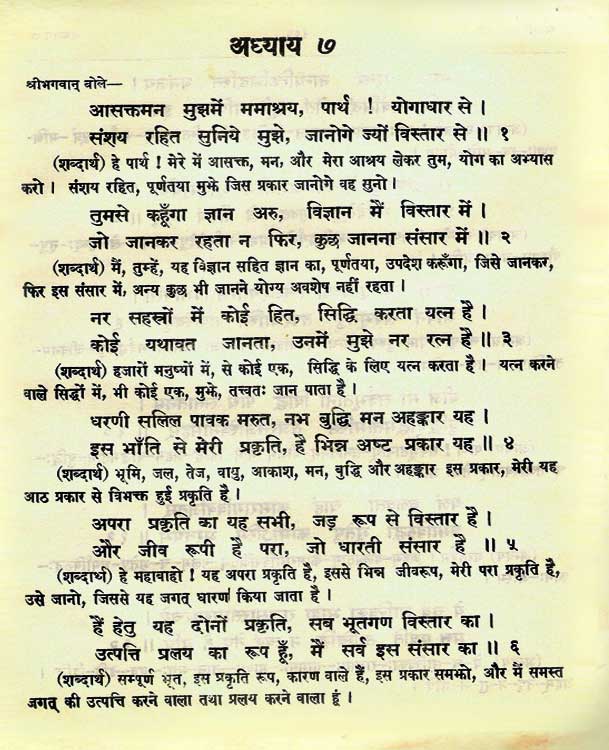 अध्याय ७
श्रीभगवान् बोले—
आसक्तमन मुझमें ममाश्रय, पार्थ ! योगाधार से ।
संशय रहित सुनिये मुझे, जानोगे ज्यों विस्तार से ॥ १
(शब्दार्थ) हे पार्थ ! मेरे में आसक्त, मन, और मेरा आश्रय लेकर तुम, योग का अभ्यास
करो । संशय रहित, पूर्णतया मुझे जिस प्रकार जानोगे वह सुनो ।
तुमसे कहूँगा ज्ञान अरु, विज्ञान मैं विस्तार में ।
जो जानकर रहता न फिर, कुछ जानना संसार में ॥ २
(शब्दार्थ) मैं, तुम्हें, यह विज्ञान सहित ज्ञान का, पूर्णतया, उपदेश करूँगा, जिसे जानकर,
फिर इस संसार में, अन्य कुछ भी जानने योग्य अवशेष नहीं रहता ।
नर सहस्त्रों में कोई हित, सिद्धि करता यत्न है ।
कोई यथावत जानता, उनमें मुझे नर रत्न है ॥ ३
(शब्दार्थ) हजारों मनुष्यों में, से कोई एक, सिद्धि के लिए यत्न करता है । यत्न करने
वाले सिद्धों में, भी कोई एक, मुझे, तत्त्वतः जान पाता है ।
धरणी सलिल पावक मरुत, नभ बुद्धि मन अहङ्कार यह ।
इस भाँति से मेरी प्रकृति, है भिन्न अष्ट प्रकार यह ॥ ४
(शब्दार्थ) भूमि, जल, तेज, वायु, आकाश, मन, बुद्धि और अहङ्कार इस प्रकार, मेरी यह
आठ प्रकार से विभक्त हुई प्रकृति है ।
अपरा प्रकृति का यह सभी, जड़ रूप से विस्तार है ।
और जीव रूपी है परा, जो धारती संसार है ॥ ५
(शब्दार्थ) हे महाबाहो ! यह अपरा प्रकृति है, इससे भिन्न जीवरूप, मेरी परा प्रकृति है,
उसे जानो, जिससे यह जगत् धारण किया जाता है ।
हैं हेतु यह दोनों प्रकृति, सब भूतगण विस्तार का ।
उत्पत्ति प्रलय का रूप हूँ, मैं सर्व इस संसार का ॥ ६
(शब्दार्थ) सम्पूर्ण भूत, इस प्रकृति रूप, कारण वाले हैं, इस प्रकार समझो, और मैं समस्त
जगत् की उत्पत्ति करने वाला तथा प्रलय करने वाला हूं ।